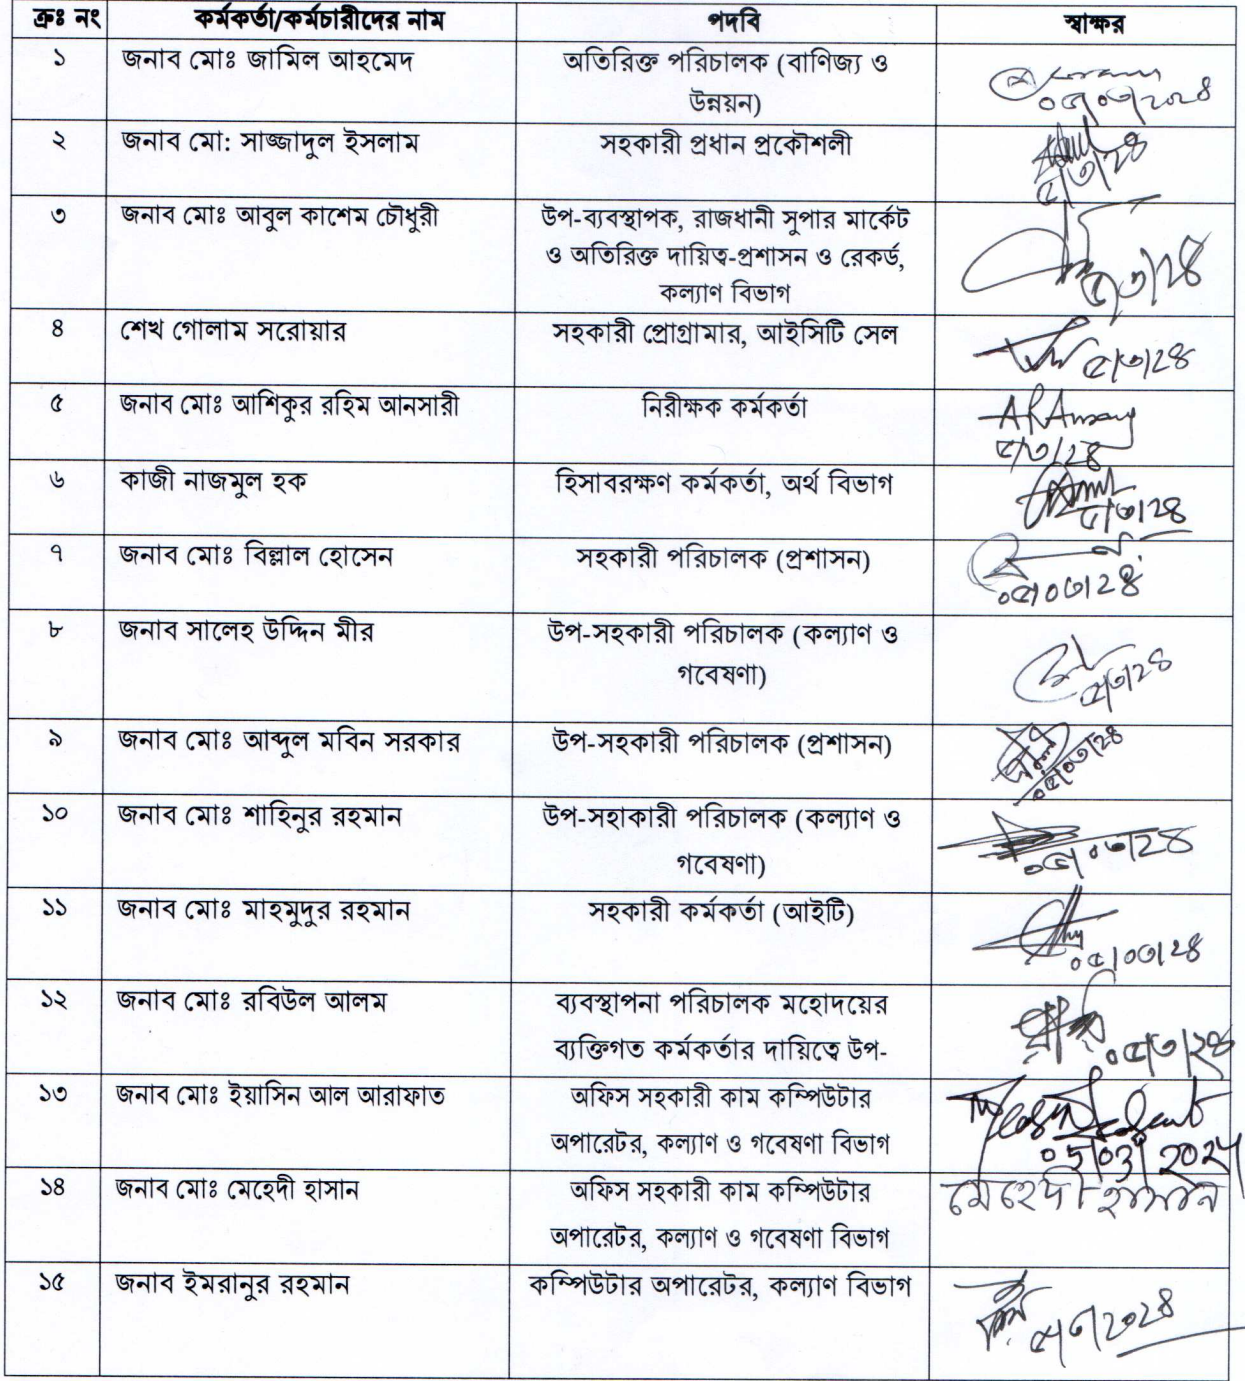 ক্রঃ নং কর্মকর্তা/কর্মচারীদের নাম পদবি স্বাক্ষর
১ জনাব মোঃ জামিল আহমেদ অতিরিক্ত পরিচালক (বাণিজ্য ও
উন্নয়ন)
০৫/০৩/২০২৪
২ জনাব মো: সাজ্জাদুল ইসলাম সহকারী প্রধান প্রকৌশলী
৫/৩/২৪
৩ জনাব মোঃ আবুল কাশেম চৌধুরী উপ-ব্যবস্থাপক, রাজধানী সুপার মার্কেট
ও অতিরিক্ত দায়িত্ব-প্রশাসন ও রেকর্ড,
কল্যাণ বিভাগ
৫/৩/২৪
৪ শেখ গোলাম সরোয়ার সহকারী প্রোগ্রামার, আইসিটি সেল
৫/৩/২৪
৫ জনাব মোঃ আশিকুর রহিম আনসারী নিরীক্ষক কর্মকর্তা
ARAnsary
৫/৩/২৪
৬ কাজী নাজমুল হক হিসাবরক্ষণ কর্মকর্তা, অর্থ বিভাগ
৫/৩/২৪
৭ জনাব মোঃ বিল্লাল হোসেন সহকারী পরিচালক (প্রশাসন)
০৫/০৩/২৪
৮ জনাব সালেহ উদ্দিন মীর উপ-সহকারী পরিচালক (কল্যাণ ও
গবেষণা)
৫/৩/২৪
৯ জনাব মোঃ আব্দুল মবিন সরকার উপ-সহকারী পরিচালক (প্রশাসন)
০৫/০৩/২৪
১০ জনাব মোঃ শাহিনুর রহমান উপ-সহাকারী পরিচালক (কল্যাণ ও
গবেষণা)
০৫/০৩/২৪
১১ জনাব মোঃ মাহমুদুর রহমান সহকারী কর্মকর্তা (আইটি)
০৫/০৩/২৪
১২ জনাব মোঃ রবিউল আলম ব্যবস্থাপনা পরিচালক মহোদয়ের
ব্যক্তিগত কর্মকর্তার দায়িত্বে উপ-
০৫/৩/২৪
১৩ জনাব মোঃ ইয়াসিন আল আরাফাত অফিস সহকারী কাম কম্পিউটার
অপারেটর, কল্যাণ ও গবেষণা বিভাগ
05/03/2024
১৪ জনাব মোঃ মেহেদী হাসান অফিস সহকারী কাম কম্পিউটার মেহেদী হাসান
অপারেটর, কল্যাণ ও গবেষণা বিভাগ
১৫ জনাব ইমরানুর রহমান কম্পিউটার অপারেটর, কল্যাণ বিভাগ
৫/৩/২০২৪